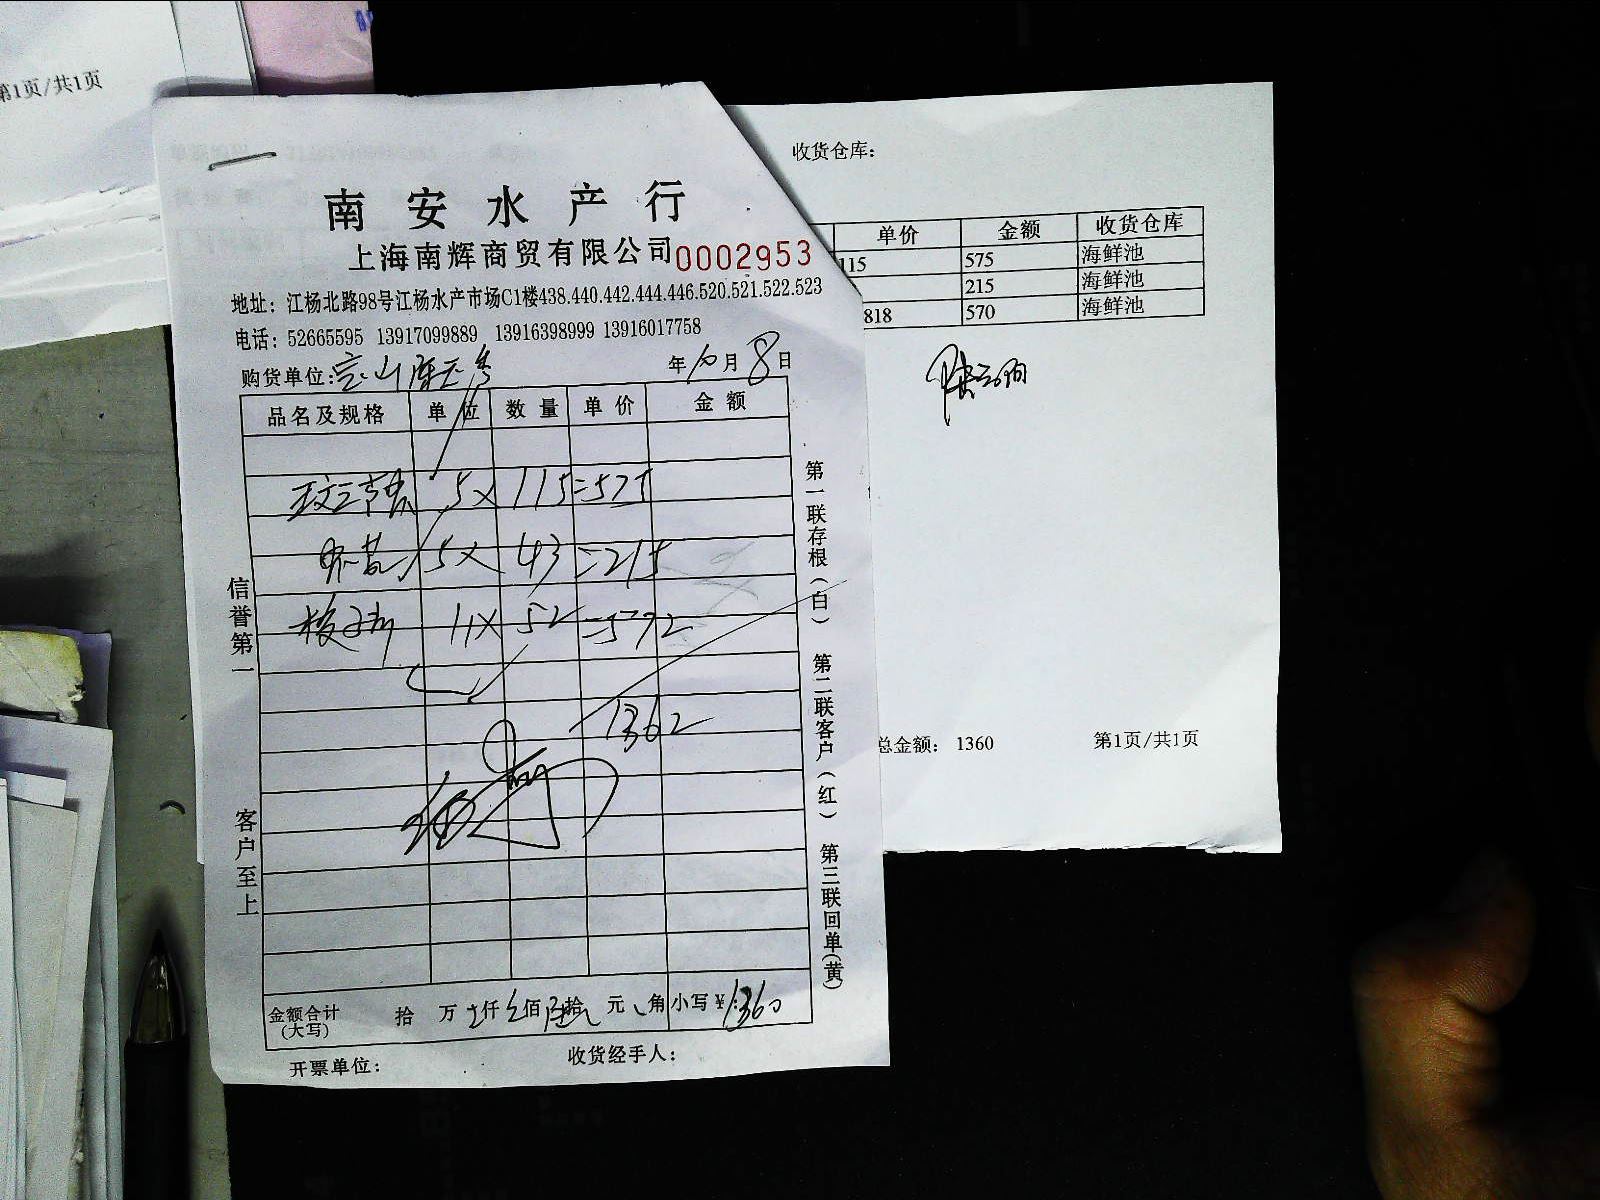 第1页/共1页
南安水产行
上海南辉商贸有限公司 0002953
地址：江杨北路98号江杨水产市场C1楼438.440.442.444.446.520.521.522.523
电话：52665595 13917099889 13916398999 13916017758
购货单位：
年 10 月 8 日
品名及规格 单位 数量 单价 金额
5 x 115 = 575
5 x 43 = 215
11 x 52 = 572
1362
金额合计 拾 万 仟 佰 拾 元 角 小写￥:1360
(大写)
开票单位： 收货经手人：
信誉第一
客户至上
第一联存根（白） 第二联客户（红） 第三联回单（黄）
收货仓库：
单价 金额 收货仓库
115 575 海鲜池
215 海鲜池
818 570 海鲜池
总金额： 1360 第1页/共1页